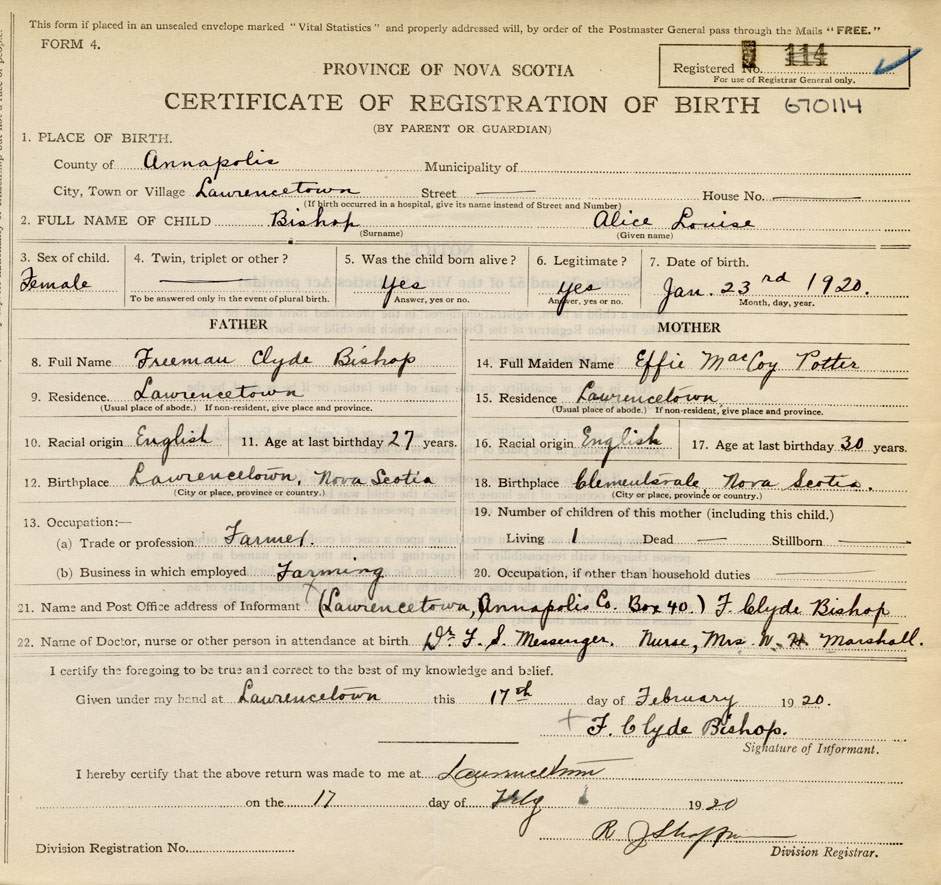 This form if placed in an unsealed envelope marked "Vital Statistics" and properly addressed will, by order of the Postmaster General pass through the Mails "FREE."
FORM 4.
Registered No. 114
For use of Registrar General only.
PROVINCE OF NOVA SCOTIA
CERTIFICATE OF REGISTRATION OF BIRTH 670114
(BY PARENT OR GUARDIAN)
1. PLACE OF BIRTH.
County of Annapolis Municipality of
City, Town or Village Lawrencetown Street — House No. —
(If birth occurred in a hospital, give its name instead of Street and Number)
2. FULL NAME OF CHILD Bishop Alice Louise
(Surname) (Given name)
3. Sex of child. 4. Twin, triplet or other? 5. Was the child born alive? 6. Legitimate? 7. Date of birth.
Female — Yes Yes Jan. 23rd 1920.
To be answered only in the event of plural birth. Answer, yes or no. Answer, yes or no. Month, day, year.
FATHER MOTHER
8. Full Name Freeman Clyde Bishop 14. Full Maiden Name Effie MacCoy Potter
9. Residence. Lawrencetown 15. Residence Lawrencetown
(Usual place of abode.) If non-resident, give place and province. (Usual place of abode.) If non-resident, give place and province.
10. Racial origin English 11. Age at last birthday 27 years. 16. Racial origin English 17. Age at last birthday 30 years.
12. Birthplace Lawrencetown, Nova Scotia 18. Birthplace Clementsvale, Nova Scotia.
(City or place, province or country.) (City or place, province or country.)
13. Occupation:— 19. Number of children of this mother (including this child.)
(a) Trade or profession Farmer. Living 1 Dead — Stillborn —
(b) Business in which employed Farming 20. Occupation, if other than household duties —
21. Name and Post Office address of Informant (Lawrencetown, Annapolis Co. Box 40.) F. Clyde Bishop
22. Name of Doctor, nurse or other person in attendance at birth Dr. F. S. Messenger. Nurse, Mrs. W. H. Marshall.
I certify the foregoing to be true and correct to the best of my knowledge and belief.
Given under my hand at Lawrencetown this 17th day of February 1920.
F. Clyde Bishop.
Signature of Informant.
I hereby certify that the above return was made to me at Lawrencetown
on the 17 day of 1920
R J
Division Registration No. Division Registrar.